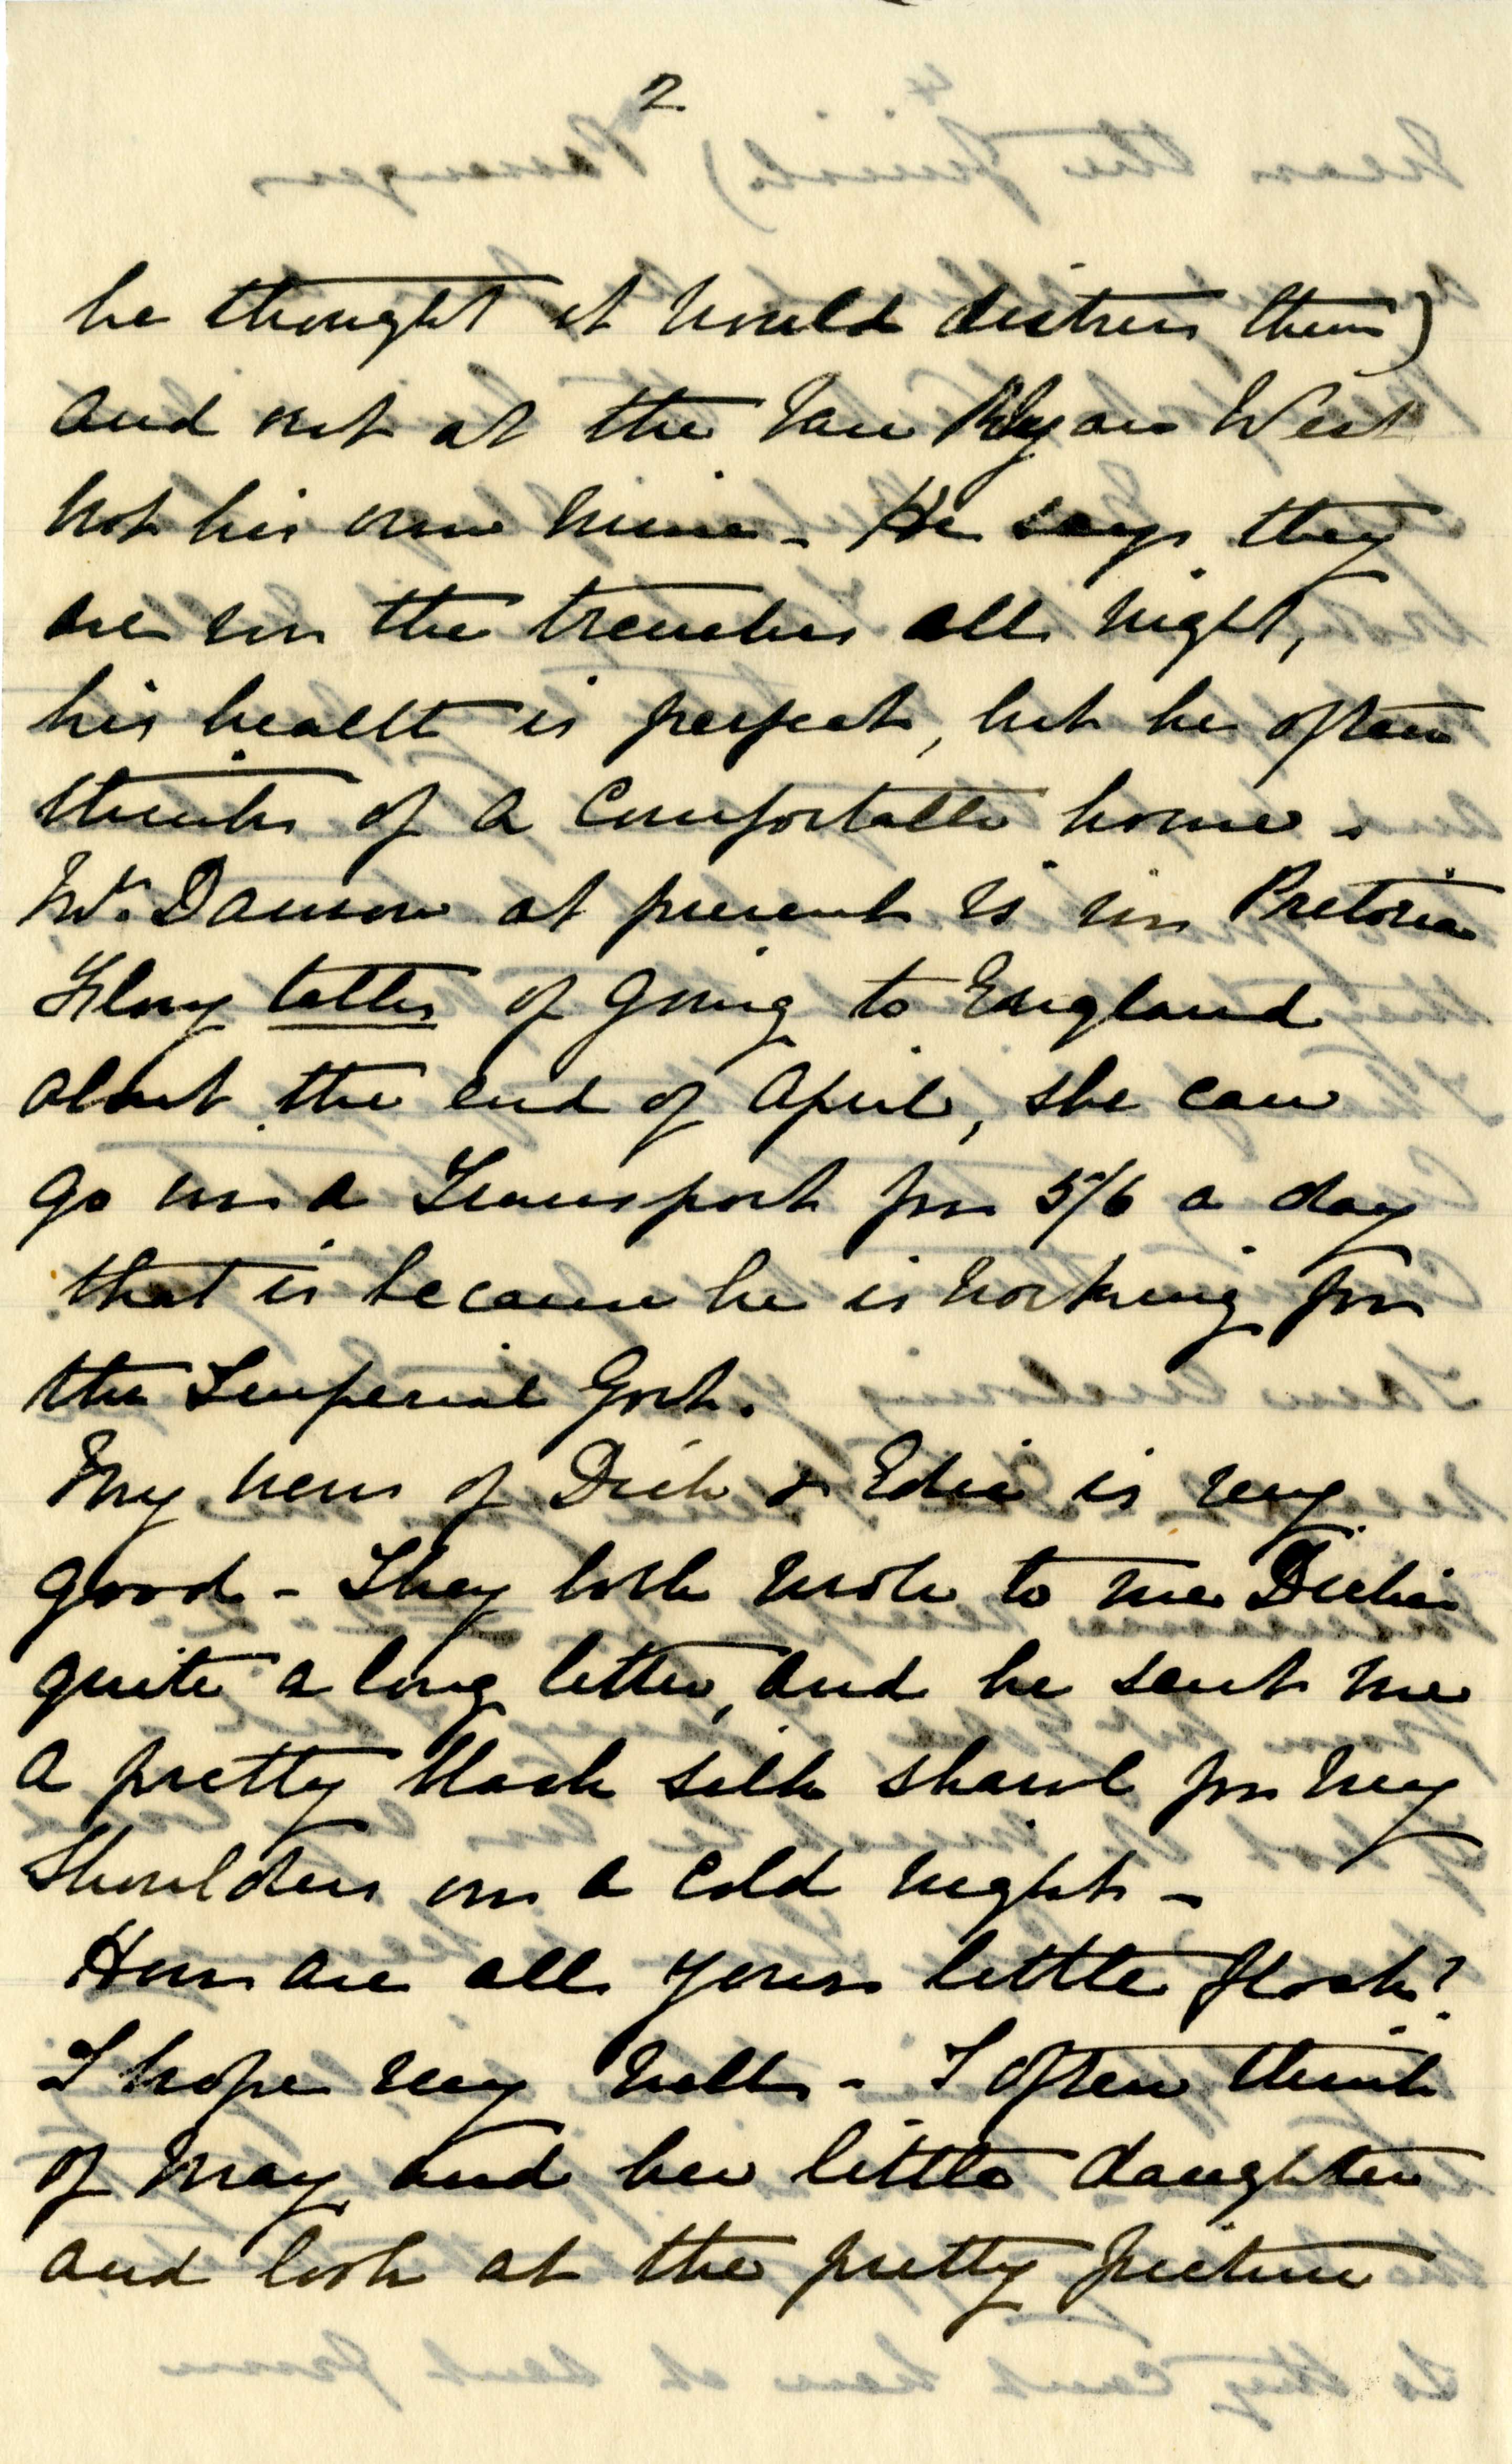 2
he thought it would distress them)
and not at the Van Ryan West
not his own mine - He says they
are in the trenches all night,
his health is perfect, but he often
thinks of a comfortable home.
Mr. Dawson at present is in Pretoria
Flory talks of going to England
about the end of April, she can
go in a Transport for 5/6 a day
that is because he is working for
the Imperial Govt.
My news of Dick & Edie is very
good - They both wrote to me Dickie
quite a long letter, and he sent me
a pretty black silk shawl for my
shoulders on a cold night -
How are all your little flock?
I hope very well - I often think
of May and her little daughter
and look at the pretty picture